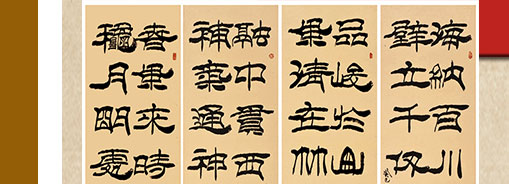 海納百川
壁立千仞
品峻於山
清在
融中貫西
通神
春來時
月明處